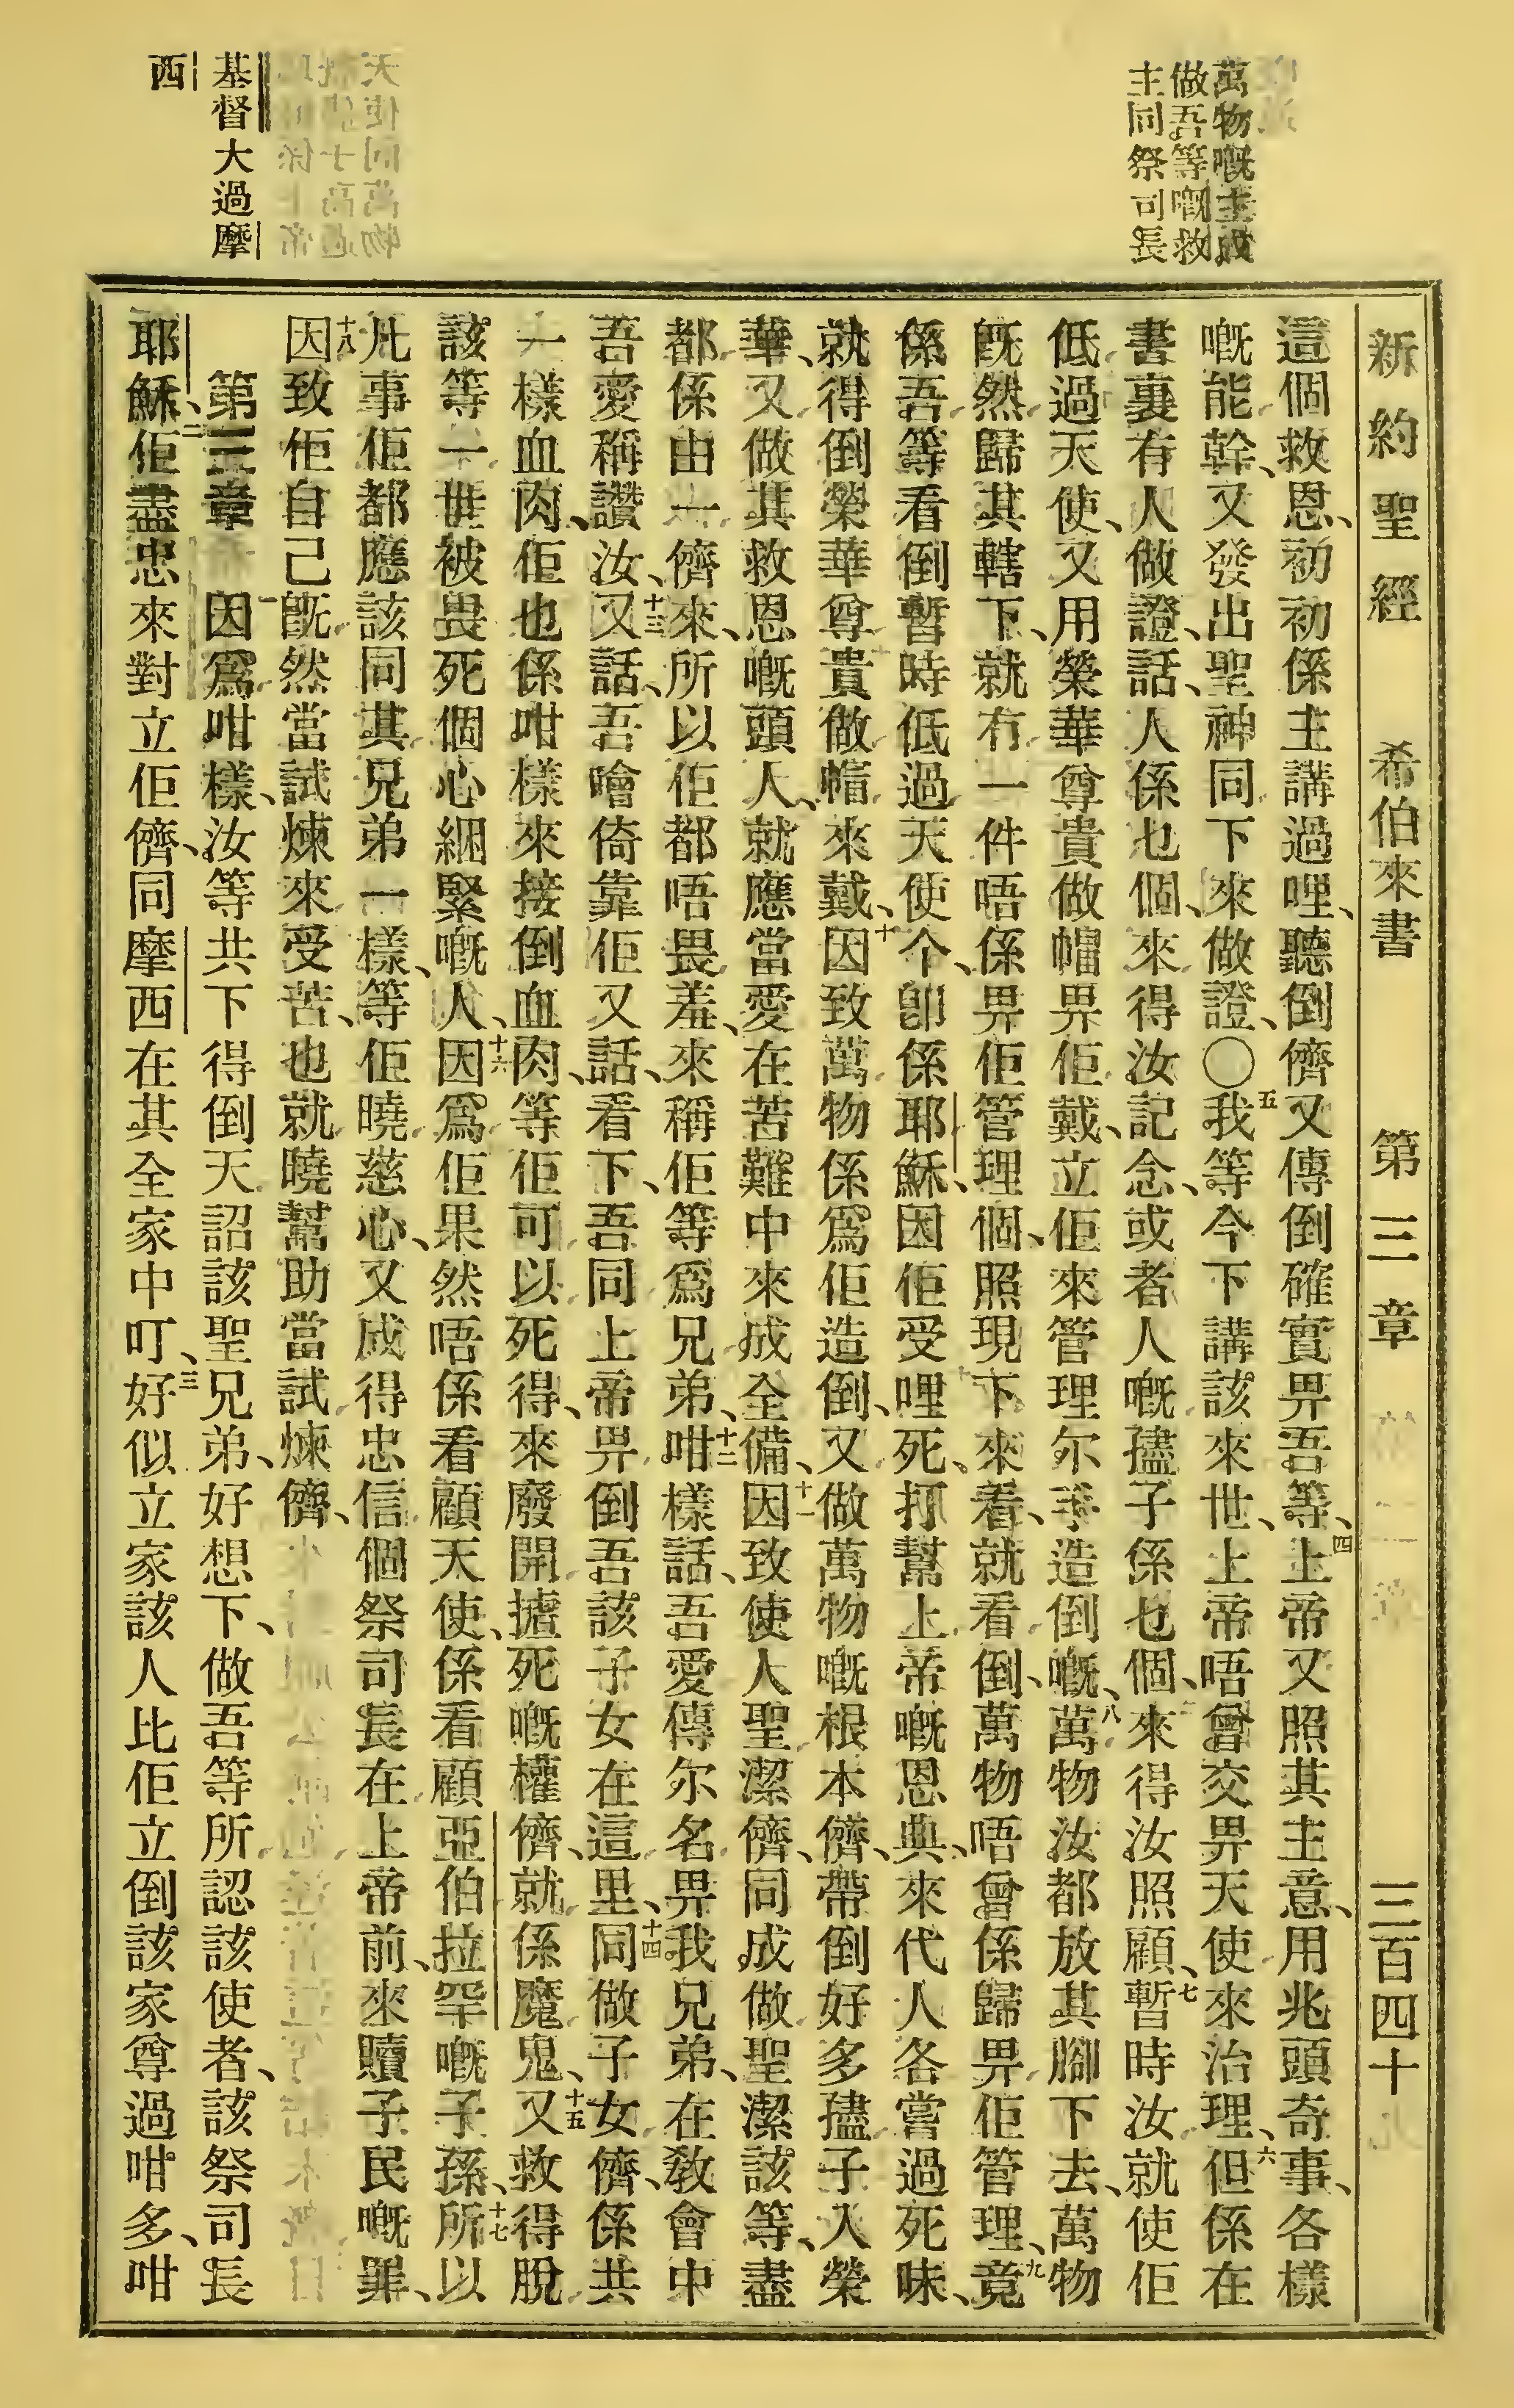 新約聖經 希伯來書 第三章 三百四十九
萬物嘅主成
做吾等嘅救
主同祭司長
這個救恩、初初係主講過哩、聽倒儕又傳倒確實畀吾等、四上帝又照其主意、用兆頭奇事、各樣
嘅能幹、又發出聖神同下來做證、〇五我等今下講該來世、上帝唔曾交畀天使來治理、六但係在
書裏有人做證、話、人係乜個、來得汝記念、或者人嘅𡥧子係乜個、來得汝照顧、七暫時汝就使佢
低過天使、又用榮華尊貴做帽畀佢戴、立佢來管理尔手造倒嘅、八萬物汝都放其腳下去、萬物
既然歸其轄下、就冇一件唔係畀佢管理個、照現下來看、就看倒、萬物唔曾係歸畀佢管理、九竟
係吾等看倒暫時低過天使今、卽係耶穌、因佢受哩死、打幫上帝嘅恩典、來代人各嘗過死味、
就得倒榮華尊貴做帽來戴、十因致萬物係爲佢造倒、又做萬物嘅根本儕、帶倒好多𡥧子入榮
華、又做其救恩嘅頭人、就應當愛在苦難中來成全備、十一因致使人聖潔儕、同成做聖潔該等、盡
都係由一儕來、所以佢都唔畏羞、來稱佢等爲兄弟、十二咁樣話、吾愛傳尔名畀我兄弟、在敎會中
吾愛稱讚汝、十三又話、吾噲倚靠佢又話、看下、吾同上帝畀倒吾該子女在這里、十四同做子女儕、係共
一樣血肉、佢也係咁樣來接倒血肉、等佢可以死得、來廢開㨻死嘅權儕、就係魔鬼、十五又救得脫
該等一世被畏死個心綑緊嘅人、十六因爲佢果然唔係看顧天使、係看顧亞伯拉罕嘅子孫、十七所以
凡事佢都應該同其兄弟一樣、等佢曉慈心、又成得忠信個祭司長在上帝前、來贖子民嘅罪、
十八因致佢自己旣然當試煉來受苦、也就曉幫助當試煉儕、
第三章 一因爲咁樣、汝等共下得倒天詔該聖兄弟、好想下、做吾等所認該使者、該祭司長
耶穌、二佢盡忠來對立佢儕、同摩西在其全家中叮、三好似立家該人比佢立倒該家尊過咁多、咁
基督大過摩
西